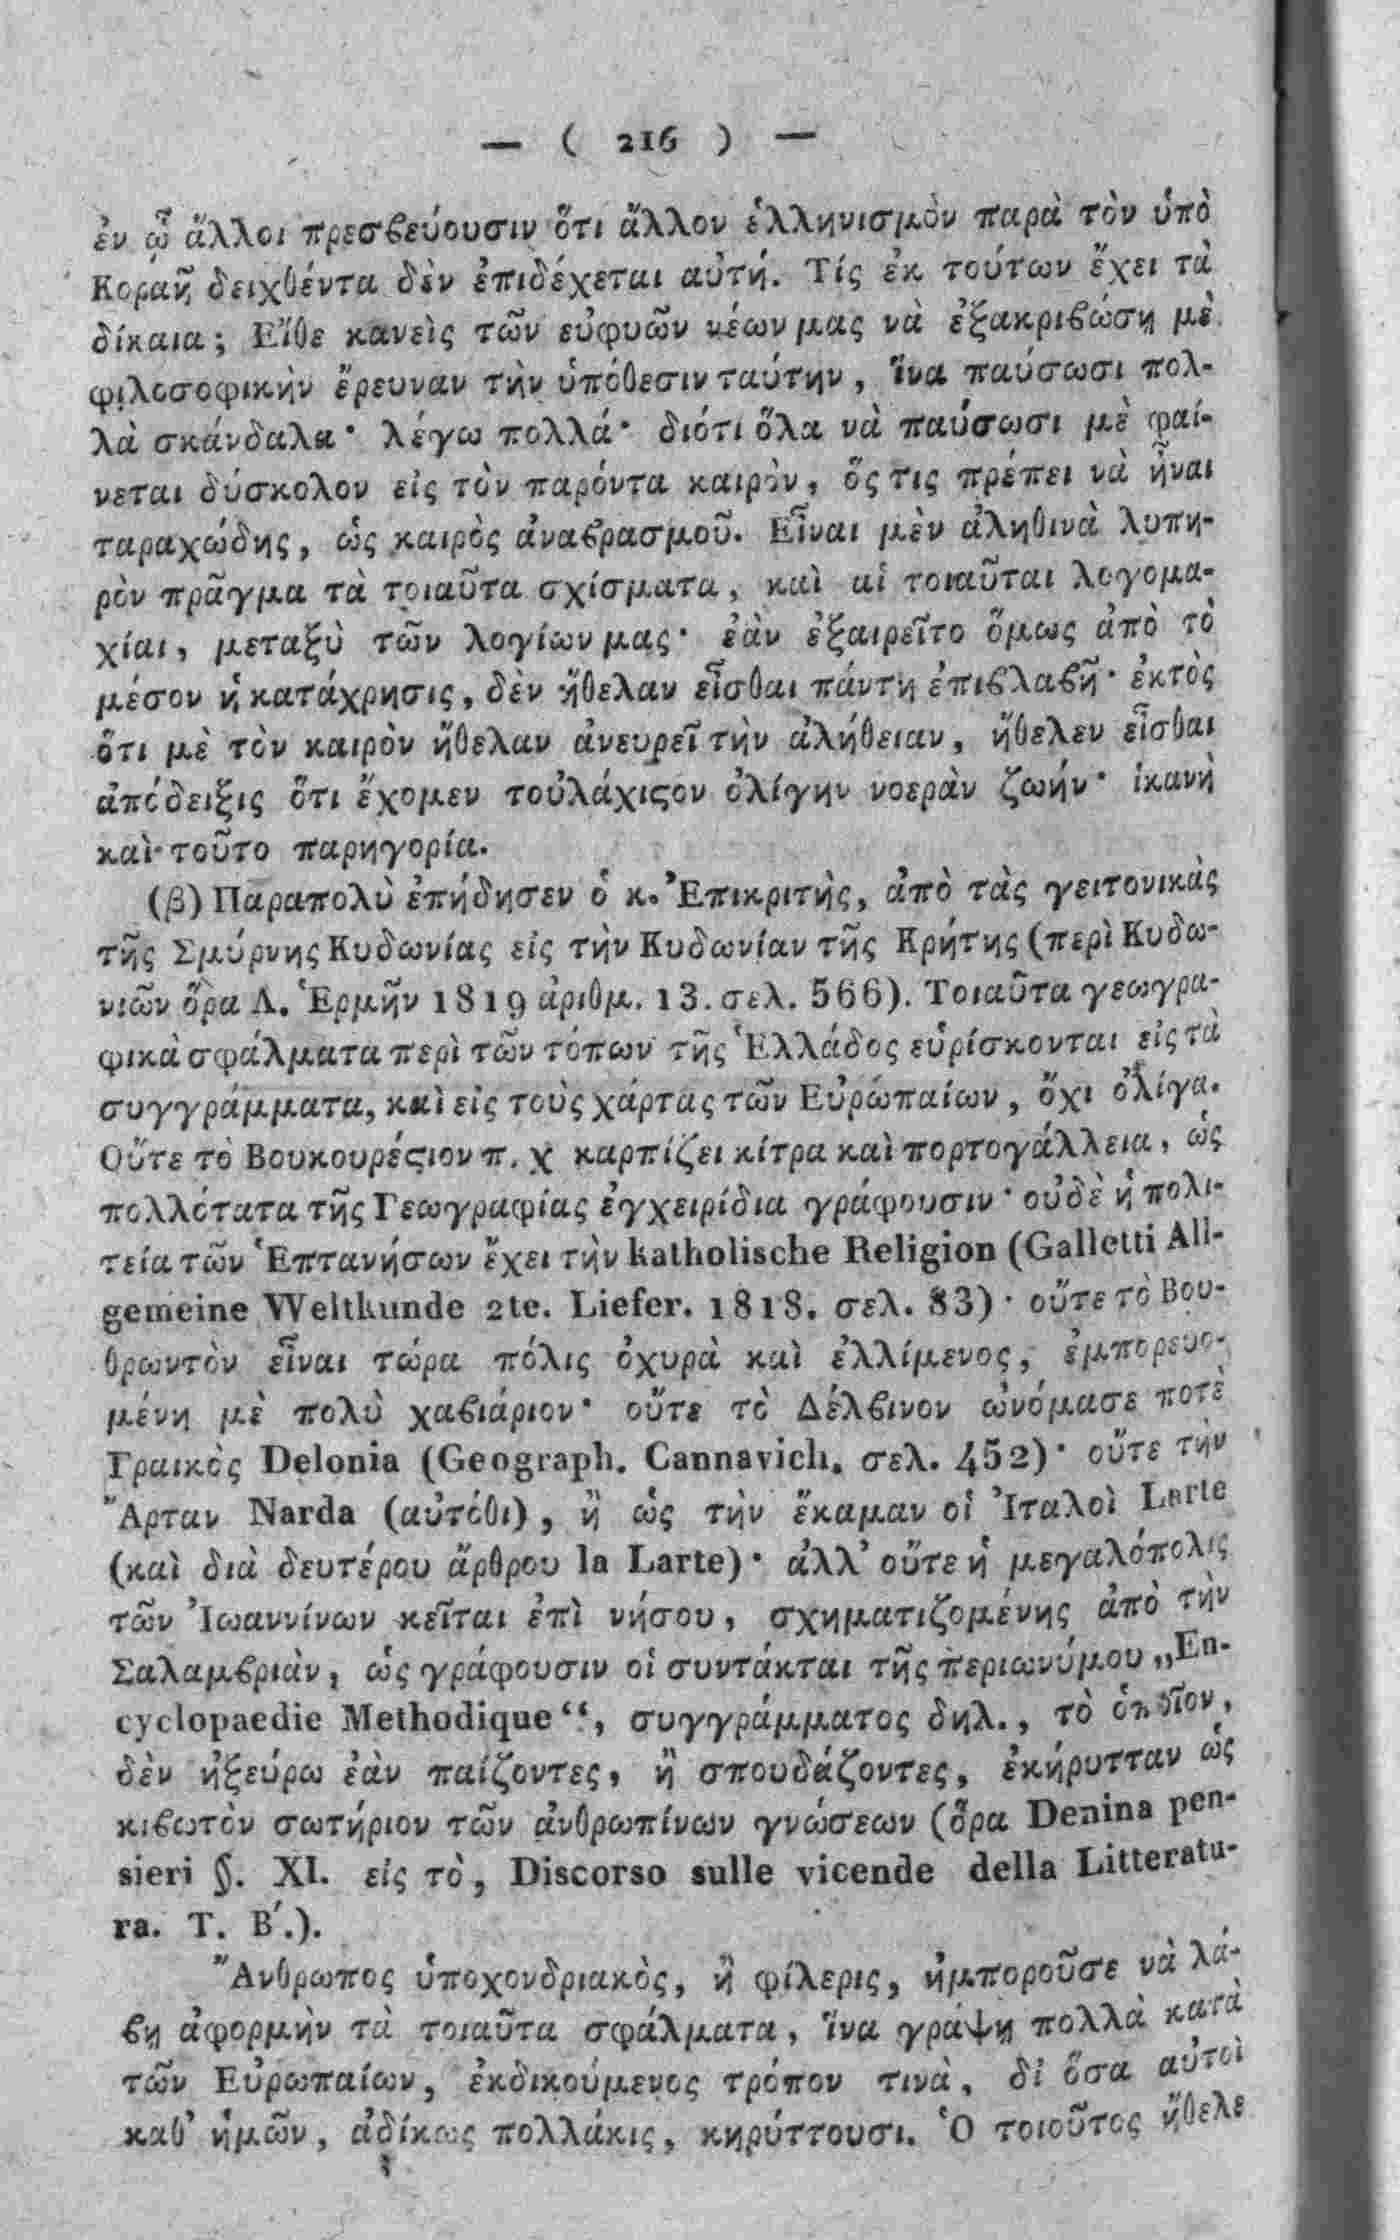 — ( 216 ) —
ἐν ᾧ ἄλλοι πρεσβεύουσιν ὅτι ἄλλον ἑλληνισμὸν παρὰ τὸν ὑπὸ
Κοραῆ δειχθέντα δὲν ἐπιδέχεται αὐτή. Τίς ἐκ τούτων ἔχει τὰ
δίκαια; Εἴθε κανεὶς τῶν εὐφυῶν νέων μας νὰ ἐξακριβώσῃ μὲ
φιλοσοφικὴν ἔρευναν τὴν ὑπόθεσιν ταύτην, ἵνα παύσωσι πολ-
λὰ σκάνδαλα· λέγω πολλά· διότι ὅλα νὰ παύσωσι μὲ φαί-
νεται δύσκολον εἰς τὸν παρόντα καιρὸν, ὅς τις πρέπει νὰ ἦναι
ταραχώδης, ὡς καιρὸς ἀναβρασμοῦ. Εἶναι μὲν ἀληθινὰ λυπη-
ρὸν πρᾶγμα τὰ τοιαῦτα σχίσματα, καὶ αἱ τοιαῦται λογομα-
χίαι, μεταξὺ τῶν λογίων μας· ἐὰν ἐξαιρεῖτο ὅμως ἀπὸ τὸ
μέσον ἡ κατάχρησις, δὲν ἤθελαν εἶσθαι πάντῃ ἐπιβλαβῆ· ἐκτὸς
ὅτι μὲ τὸν καιρὸν ἤθελαν ἀνευρεῖ τὴν ἀλήθειαν, ἤθελεν εἶσθαι
ἀπόδειξις ὅτι ἔχομεν τοὐλάχιϛον ὀλίγην νοερὰν ζωήν· ἱκανὴ
καὶ τοῦτο παρηγορία.
(β) Παραπολὺ ἐπήδησεν ὁ κ. Ἐπικριτὴς, ἀπὸ τὰς γειτονικὰς
τῆς Σμύρνης Κυδωνίας εἰς τὴν Κυδωνίαν τῆς Κρήτης (περὶ Κυδω-
νιῶν ὅρα Λ. Ἑρμῆν 1819 ἀριθμ. 13. σελ. 566). Τοιαῦτα γεωγρα-
φικὰ σφάλματα περὶ τῶν τόπων τῆς Ἑλλάδος εὑρίσκονται εἰς τὰ
συγγράμματα, καὶ εἰς τοὺς χάρτας τῶν Εὐρωπαίων, ὄχι ὀλίγα.
Οὔτε τὸ Βουκουρέϛιον π. χ καρπίζει κίτρα καὶ πορτογάλλεια, ὡς
πολλότατα τῆς Γεωγραφίας ἐγχειρίδια γράφουσιν· οὐδὲ ἡ πολι-
τεία τῶν Ἑπτανήσων ἔχει τὴν katholische Religion (Galletti All-
gemeine Weltkunde 2te. Liefer. 1818. σελ. 83)· οὔτε τὸ Βου-
θρωντὸν εἶναι τώρα πόλις ὀχυρὰ καὶ ἐλλίμενος, ἐμπορευο-
μένη μὲ πολὺ χαβιάριον· οὔτε τὸ Δέλβινον ὠνόμασε ποτὲ
Γραικὸς Delonia (Geograph. Cannavich. σελ. 452)· οὔτε τὴν
Ἄρταν Narda (αὐτόθι), ἢ ὡς τὴν ἔκαμαν οἱ Ἰταλοὶ Larte
(καὶ διὰ δευτέρου ἄρθρου la Larte)· ἀλλ' οὔτε ἡ μεγαλόπολις
τῶν Ἰωαννίνων κεῖται ἐπὶ νήσου, σχηματιζομένης ἀπὸ τὴν
Σαλαμβριὰν, ὡς γράφουσιν οἱ συντάκται τῆς περιωνύμου „En-
cyclopaedie Methodique“, συγγράμματος δηλ., τὸ ὁποῖον,
δὲν ἠξεύρω ἐὰν παίζοντες, ἢ σπουδάζοντες, ἐκήρυτταν ὡς
κιβωτὸν σωτήριον τῶν ἀνθρωπίνων γνώσεων (ὅρα Denina pen-
sieri §. XI. εἰς τὸ, Discorso sulle vicende della Litteratu-
ra. T. Β΄.).
Ἄνθρωπος ὑποχονδριακὸς, ἢ φίλερις, ἠμποροῦσε νὰ λά-
βῃ ἀφορμὴν τὰ τοιαῦτα σφάλματα, ἵνα γράψῃ πολλὰ κατὰ
τῶν Εὐρωπαίων, ἐκδικούμενος τρόπον τινὰ, δι ὅσα αὐτοὶ
καθ' ἡμῶν, ἀδίκως πολλάκις, κηρύττουσι. Ὁ τοιοῦτος ἤθελε